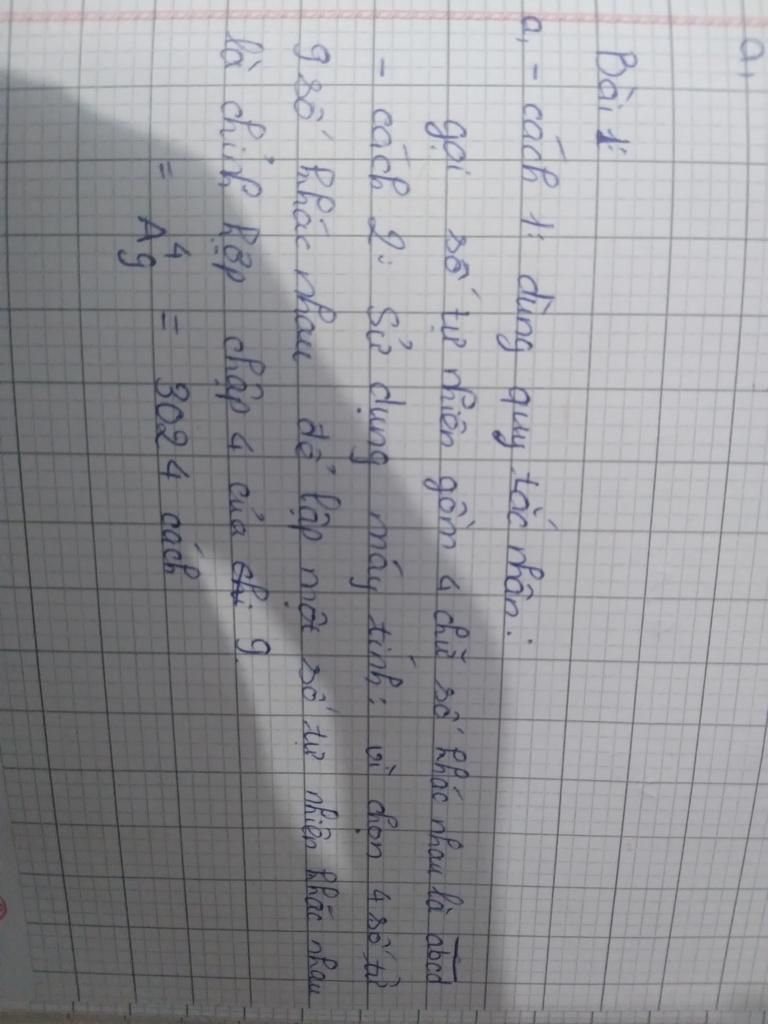 a,
Bài 1:
a, - cách 1: dùng quy tắc nhân:
gọi số tự nhiên gồm 4 chữ số khác nhau là abcd
- cách 2: Sử dụng máy tính: vì chọn 4 số từ
9 số khác nhau để lập một số tự nhiên khác nhau
là chỉnh hợp chập 4 của 9.
= A⁴₉ = 3024 cách